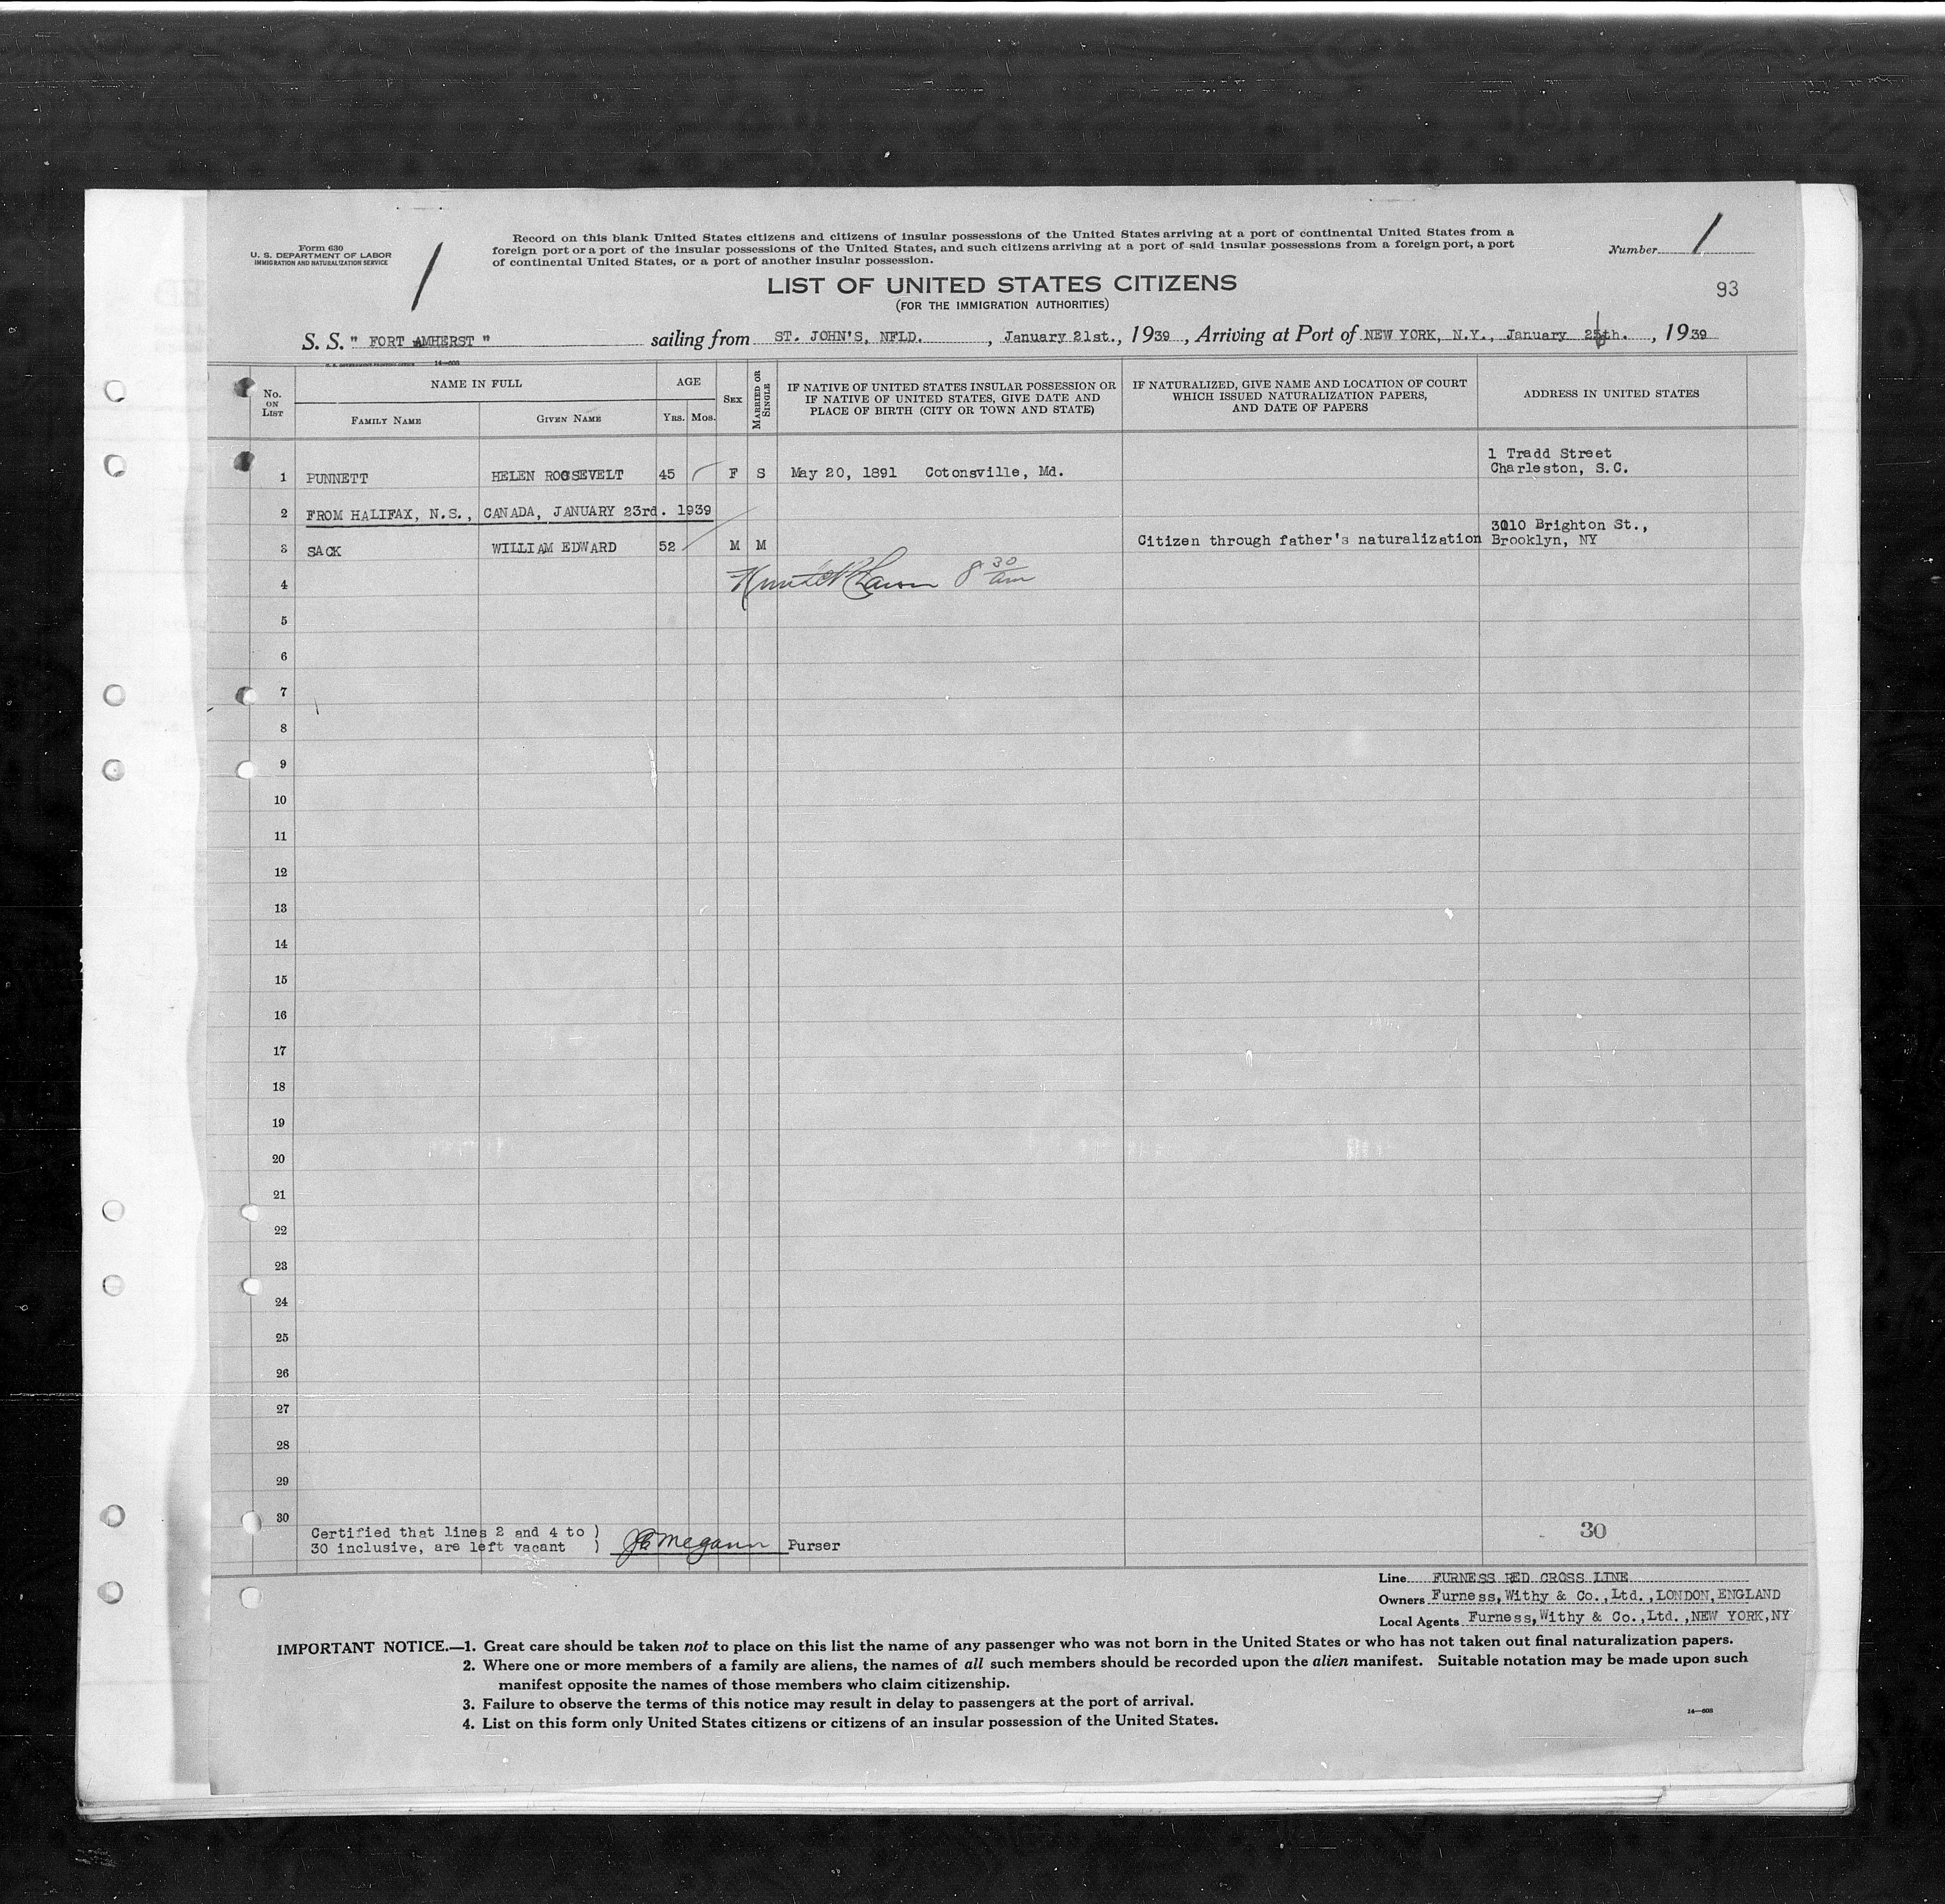 Form 630
U. S. DEPARTMENT OF LABOR
IMMIGRATION AND NATURALIZATION SERVICE
1
Record on this blank United States citizens and citizens of insular possessions of the United States arriving at a port of continental United States from a
foreign port or a port of the insular possessions of the United States, and such citizens arriving at a port of said insular possessions from a foreign port, a port
of continental United States, or a port of another insular possession.
Number 1
LIST OF UNITED STATES CITIZENS
(FOR THE IMMIGRATION AUTHORITIES)
93
S. S. " FORT AMHERST " sailing from ST. JOHN'S, NFLD. , January 21st., 1939 , Arriving at Port of NEW YORK, N.Y., January 25th. , 1939
U. S. GOVERNMENT PRINTING OFFICE 14—608
No. ON LIST
NAME IN FULL
FAMILY NAME
GIVEN NAME
AGE
YRS. MOS.
SEX
MARRIED OR SINGLE
IF NATIVE OF UNITED STATES INSULAR POSSESSION OR
IF NATIVE OF UNITED STATES, GIVE DATE AND
PLACE OF BIRTH (CITY OR TOWN AND STATE)
IF NATURALIZED, GIVE NAME AND LOCATION OF COURT
WHICH ISSUED NATURALIZATION PAPERS,
AND DATE OF PAPERS
ADDRESS IN UNITED STATES
1 PUNNETT HELEN ROOSEVELT 45 F S May 20, 1891 Cotonsville, Md. 1 Tradd Street
Charleston, S.C.
2 FROM HALIFAX, N.S., CANADA, JANUARY 23rd. 1939
3 SACK WILLIAM EDWARD 52 M M Citizen through father's naturalization 3010 Brighton St.,
Brooklyn, NY
4 8 30 am
5
6
7
8
9
10
11
12
13
14
15
16
17
18
19
20
21
22
23
24
25
26
27
28
29
30
Certified that lines 2 and 4 to )
30 inclusive, are left vacant ) Megann Purser
30
Line FURNESS RED CROSS LINE
Owners Furness, Withy & Co., Ltd., LONDON, ENGLAND
Local Agents Furness, Withy & Co., Ltd., NEW YORK, NY
IMPORTANT NOTICE.—1. Great care should be taken not to place on this list the name of any passenger who was not born in the United States or who has not taken out final naturalization papers.
2. Where one or more members of a family are aliens, the names of all such members should be recorded upon the alien manifest. Suitable notation may be made upon such
manifest opposite the names of those members who claim citizenship.
3. Failure to observe the terms of this notice may result in delay to passengers at the port of arrival.
4. List on this form only United States citizens or citizens of an insular possession of the United States.
14—608